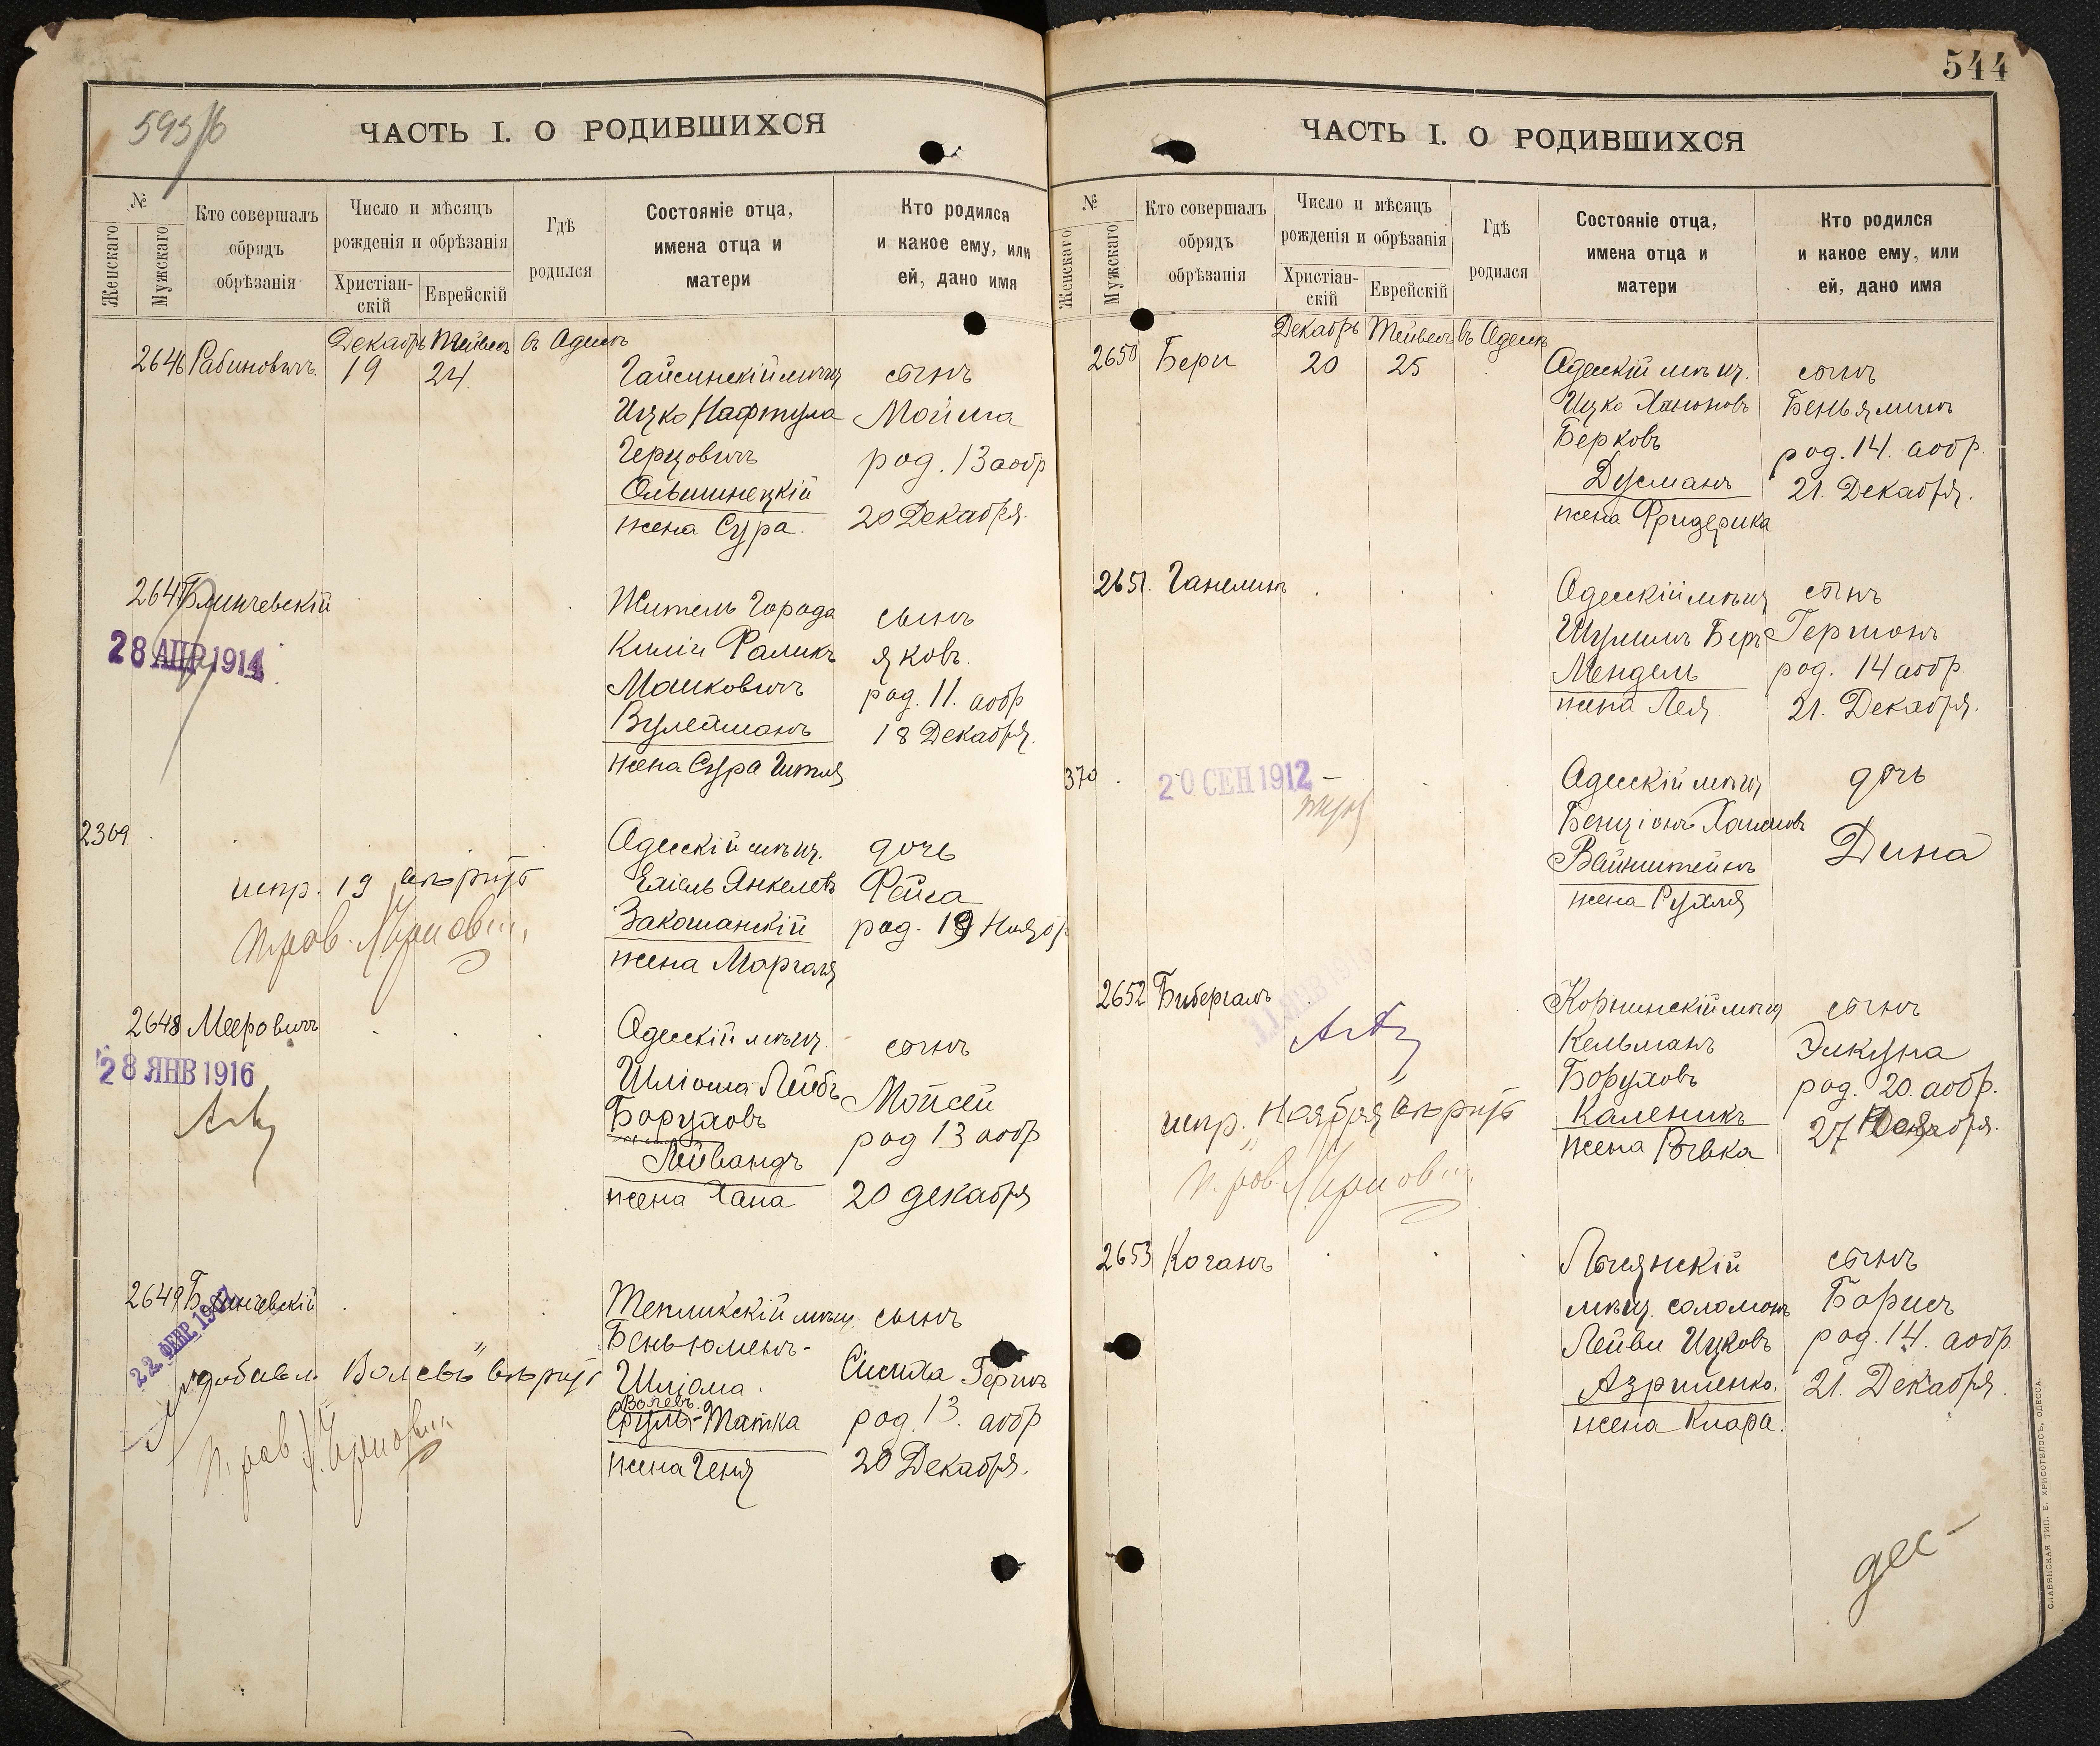 593/6
ЧАСТЬ I. О РОДИВШИХСЯ
№
Женскаго
Мужскаго
Кто совершалъ
обрядъ
обрѣзанія
Число и мѣсяцъ
рожденія и обрѣзанія
Христіан-
скій
Еврейскій
Гдѣ
родился
Состояніе отца,
имена отца и
матери
Кто родился
и какое ему, или
ей, дано имя
Декабрь Тейвесъ въ Одессѣ
2646 Рабиновичъ 19 24
Гайсинскій мѣщ
Ицко Нафтула
Герцовичъ
Ольшинецкій
жена Сура.
сынъ
Мойша
род. 13 а обр
20 Декабря.
2647 Блинчевскій
28 АПР 1914
Житель Города
Киліи Фаликъ
Машковичъ
Вулейманъ
жена Сура Гитля
сынъ
Яковъ.
род. 11. а обр
18 Декабря.
2369
испр. 19 вѣрно
Одесскій мѣщ.
Ехіель Янкелевъ
Закошанскій
жена Маргаля
дочь
Фейга
род. 19 Ноябр
2648 Мееровичъ
28 ЯНВ 1916
Одесскій мѣщ.
Шліома-Лейбъ
Боруховъ
Лейвандъ
жена Хана
сынъ
Мойсей
род 13 а обр
20 декабря
2649 Блинчевскій
22 ФЕВР. 1907
добавл. Волевъ" вѣрно
Тепликскій мѣщ
Беньюменъ-
Шліома
Волевъ
Сруль-Татка
жена Геня
сынъ
Симха Гершъ
род. 13. а обр
20 Декабря.
544
ЧАСТЬ I. О РОДИВШИХСЯ
№
Женскаго
Мужскаго
Кто совершалъ
обрядъ
обрѣзанія
Число и мѣсяцъ
рожденія и обрѣзанія
Христіан-
скій
Еврейскій
Гдѣ
родился
Состояніе отца,
имена отца и
матери
Кто родился
и какое ему, или
ей, дано имя
Декабрь Тейвесъ въ Одессѣ
2650 Бери 20 25
Одесскій мѣщ.
Ицко Ханоновъ
Берковъ
Дусманъ
жена Фридерика
сынъ
Беньяминъ
род. 14. а обр.
21. Декабря.
2651. Ганелинъ
Одесскій мѣщ
Шулимъ Беръ
Мендель
жена Лея
сынъ
Гершонъ
род. 14 а обр
21. Декабря.
370
20 СЕН 1912
Одесскій мѣщ
Бенціонъ Хаимовъ
Вайнштейнъ
жена Рухля
дочь
Дина
2652 Бибергалъ
испр. „Ноября" вѣрно
Корнинскій мѣщ
Кельманъ
Боруховъ
Каленикъ
жена Ривка
сынъ
Элкуна
род. 20. а обр.
27 Ноября.
2653 Коганъ
Лысянскій
мѣщ. Соломонъ
Лейви Ицковъ
Азриленко.
жена Клара.
сынъ
Борисъ
род. 14. а обр.
21. Декабря.
дес-
СЛАВЯНСКАЯ ТИП. Е. ХРИСОГЕЛОСЪ, ОДЕССА.